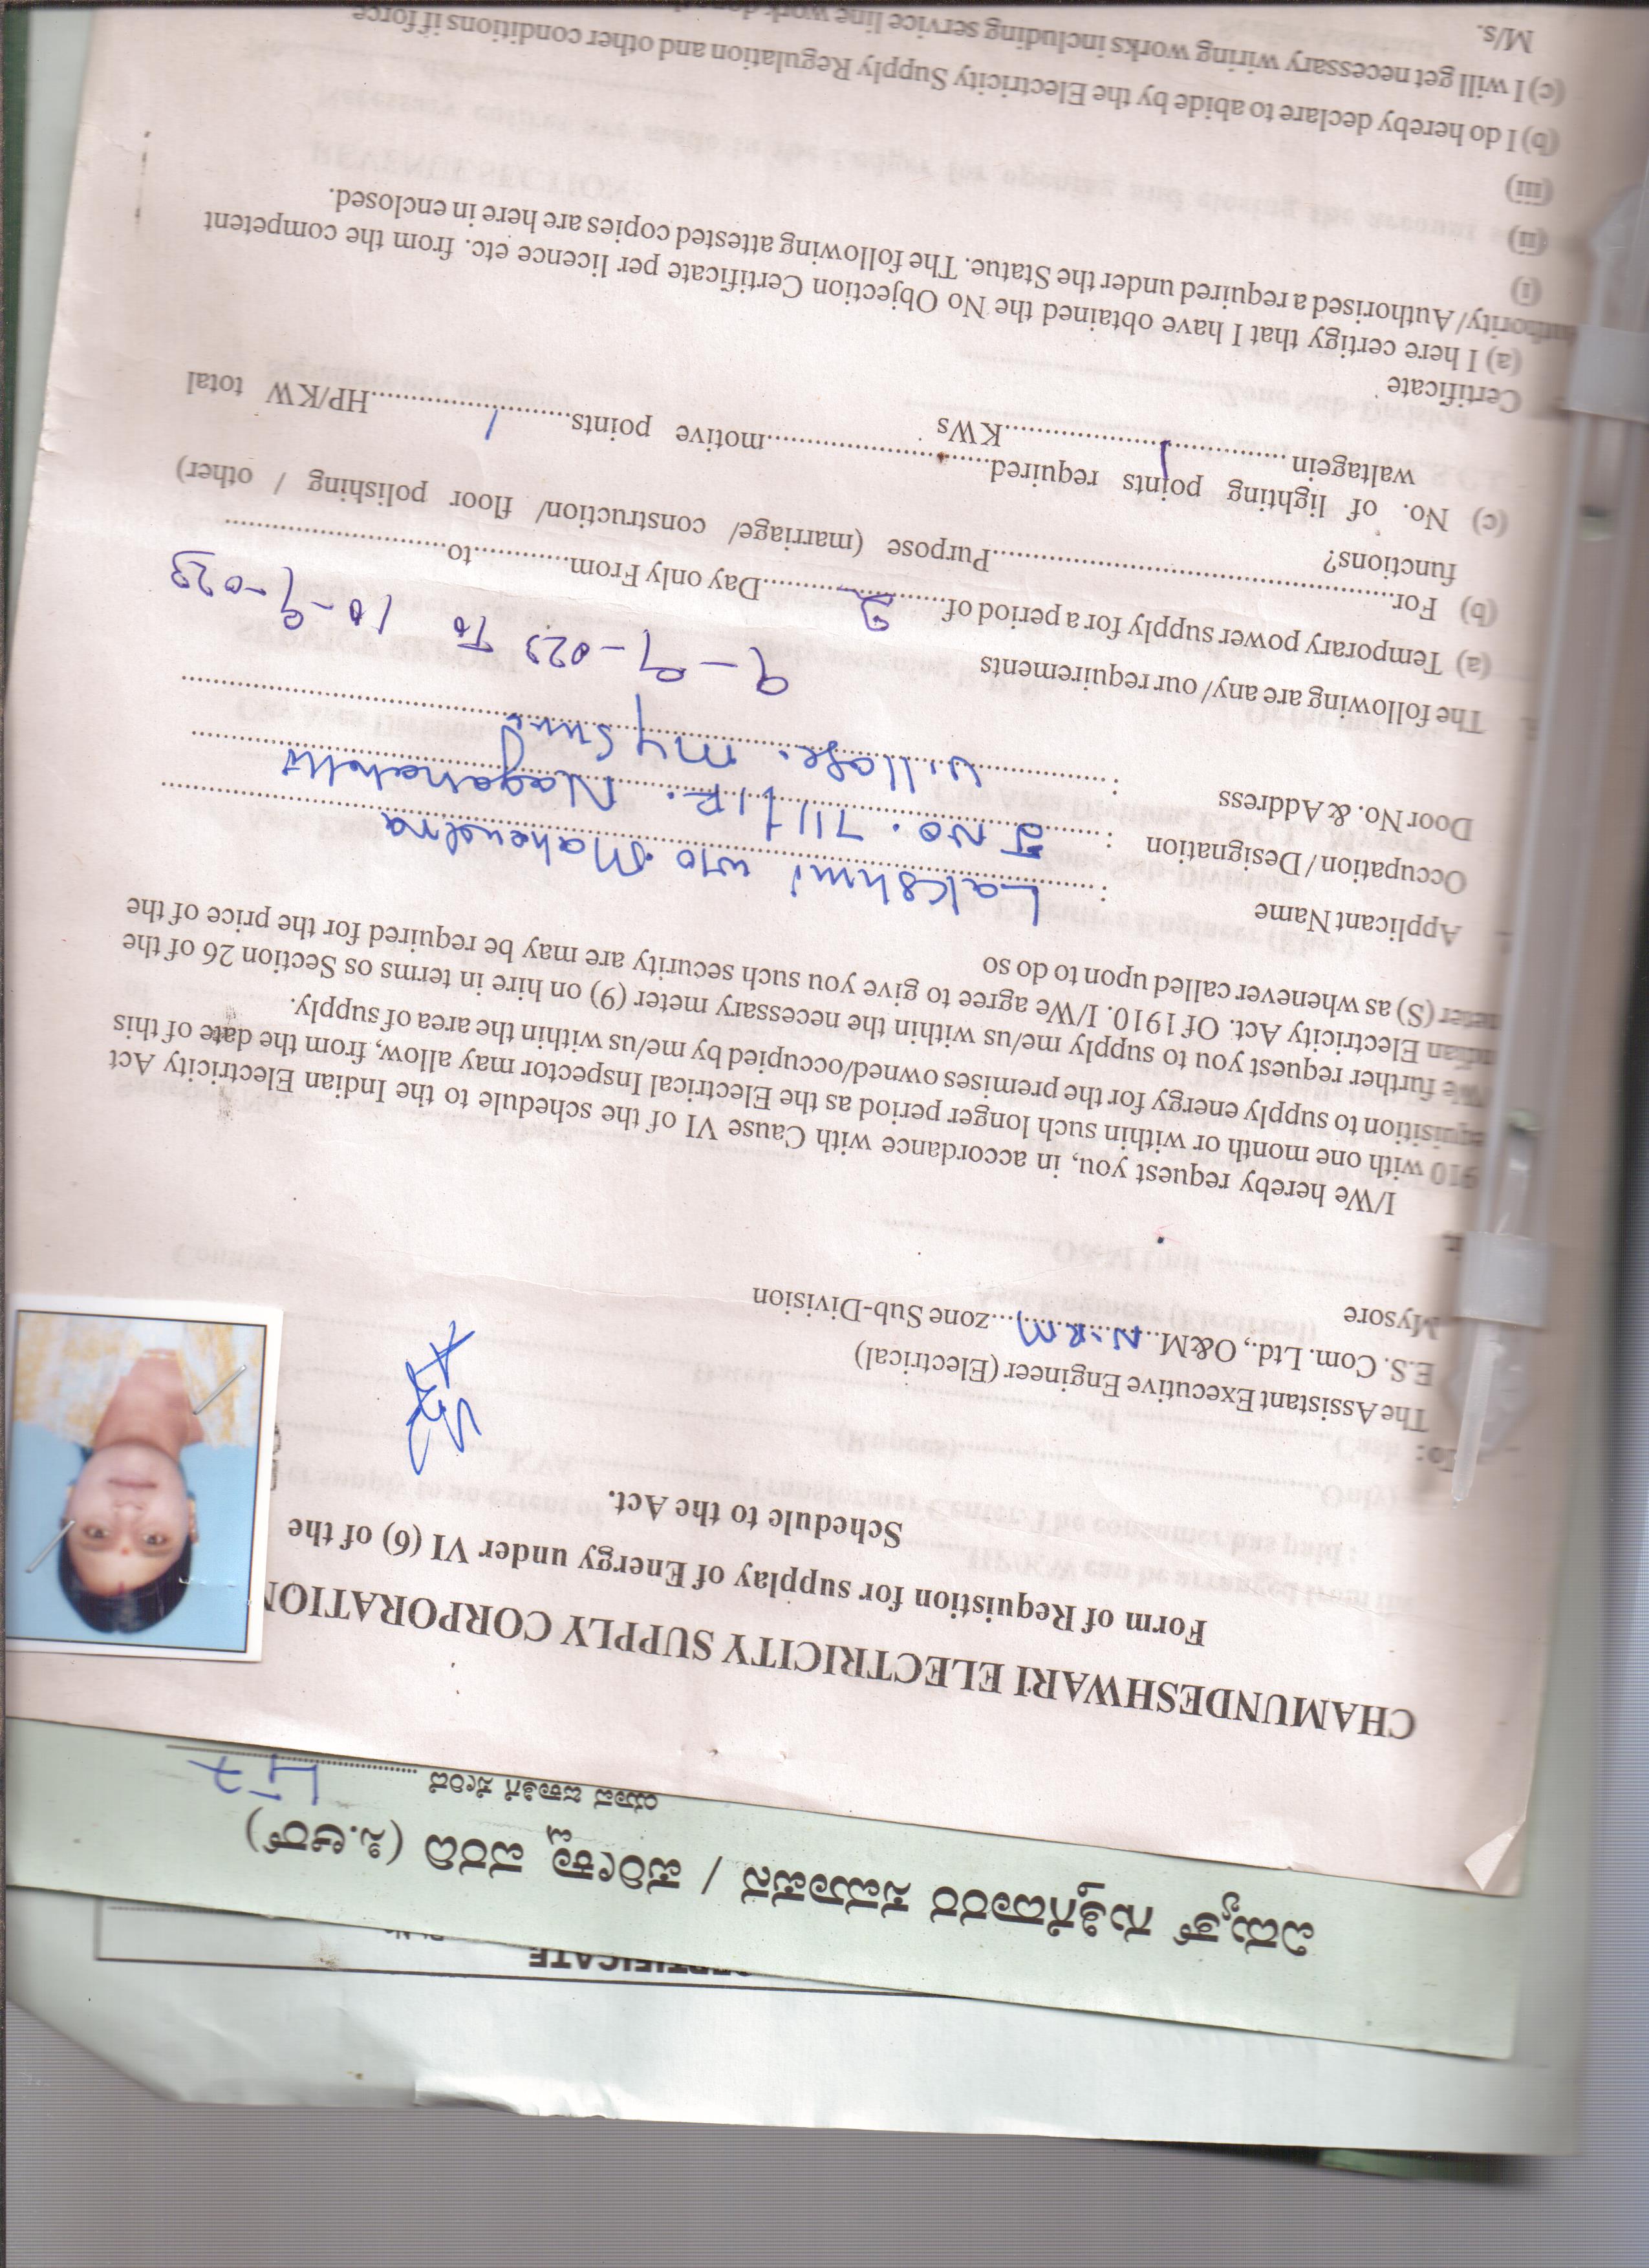 CERTIFICATE
ವಿದ್ಯುತ್ ಗುತ್ತಿಗೆದಾರರ ಸಮಾಪನ / ಪರೀಕ್ಷಾ ವರದಿ (ಸಿ.ಆರ್)
ಯಾವ ಜಾತಿಗೆ ಸೇರಿದೆ
CHAMUNDESHWARI ELECTRICITY SUPPLY CORPORATION
Form of Requistion for supplay of Energy under VI (6) of the
Schedule to the Act.
To:
The Assistant Executive Engineer (Electrical)
E.S. Com. Ltd., O&M..N.R.M...zone Sub-Division
Mysore
I/We hereby request you, in accordance with Cause VI of the schedule to the Indian Electricity Act
910 with one month or within such longer period as the Electrical Inspector may allow, from the date of this
equisition to supply energy for the premises owned/occupied by me/us within the area of supply.
/We further request you to supply me/us within the necessary meter (9) on hire in terms os Section 26 of the
ndian Electricity Act. Of 1910. I/We agree to give you such security are may be required for the price of the
meter (S) as whenever called upon to do so
Applicant Name : Lakshmi w/o Mahendra
Occupation / Designation : J No. 711/1R. Naganahalli
Door No. & Address : Village. Mysure
The following are any/ our requirements 9-9-023 To 10-9-023
(a) Temporary power supply for a period of 2 Day only From............to............
(b) For............Purpose (marriage/ construction/ floor polishing / other)
functions?
(c) No. of lighting points required............motive points............HP/KW total
waltagein 1 KWs 1
Certificate
(a) I here certigy that I have obtained the No Objection Certificate per licence etc. from the competent
Authority/ Authorised a required under the Statue. The following attested copies are here in enclosed.
(i)
(ii)
(iii)
(b) I do hereby declare to abide by the Electricity Supply Regulation and other conditions if force
(c) I will get necessary wiring works including service line work
M/s.